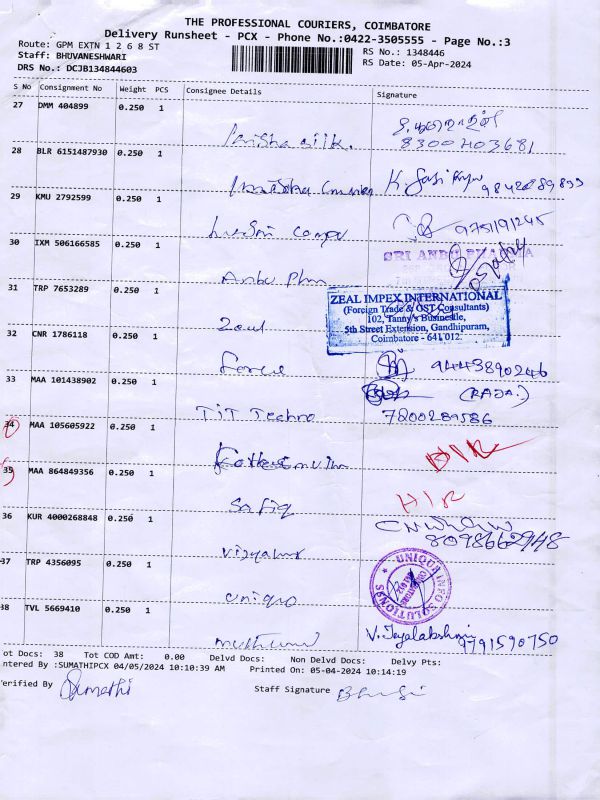 THE PROFESSIONAL COURIERS, COIMBATORE
Delivery Runsheet - PCX - Phone No.:0422-3505555 - Page No.:3
Route: GPM EXTN 1 2 6 8 ST
RS No.: 1348446
Staff: BHUVANESHWARI
RS Date: 05-Apr-2024
DRS No.: DCJB134844603
S No Consignment No Weight PCS Consignee Details Signature
27 DMM 404899 0.250 1
8300703681
28 BLR 6151487930 0.250 1
29 KMU 2792599 0.250 1
9751191245
30 IXM 506166585 0.250 1
Anbu Phm
SRI ANBU PHARMA
31 TRP 7653289 0.250 1
Zeal
ZEAL IMPEX INTERNATIONAL
(Foreign Trade & GST Consultants)
102, Tanny's Businessle,
5th Street Extension, Gandhipuram,
Coimbatore - 641 012.
32 CNR 1786118 0.250 1
Force
9443890246
33 MAA 101438902 0.250 1
TIT Techno
(RAJA.)
7200289586
34 MAA 105605922 0.250 1
35 MAA 864849356 0.250 1
Safiq
36 KUR 4000268848 0.250 1
8098662948
37 TRP 4356095 0.250 1
uniqo
UNIQUA INFO SOLUTIONS
38 TVL 5669410 0.250 1
V. Jeyalakshmi
9791590750
ot Docs: 38 Tot COD Amt: 0.00 Delvd Docs: Non Delvd Docs: Delvy Pts:
ntered By :SUMATHIPCX 04/05/2024 10:10:39 AM Printed On: 05-04-2024 10:14:19
erified By Sumathi
Staff Signature